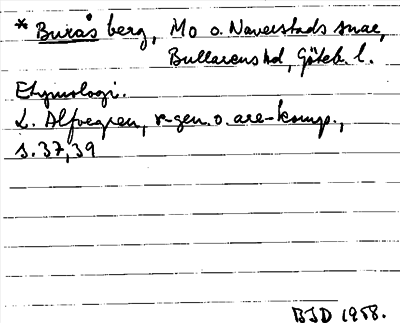 * Buxås berg, Mo o. Naverstads snar,
Bullarens hd, Göteb. l.
Etymologi.
L. Alfvegren, r-gen. o. are-komp.,
s. 37, 39
BJD 1958.